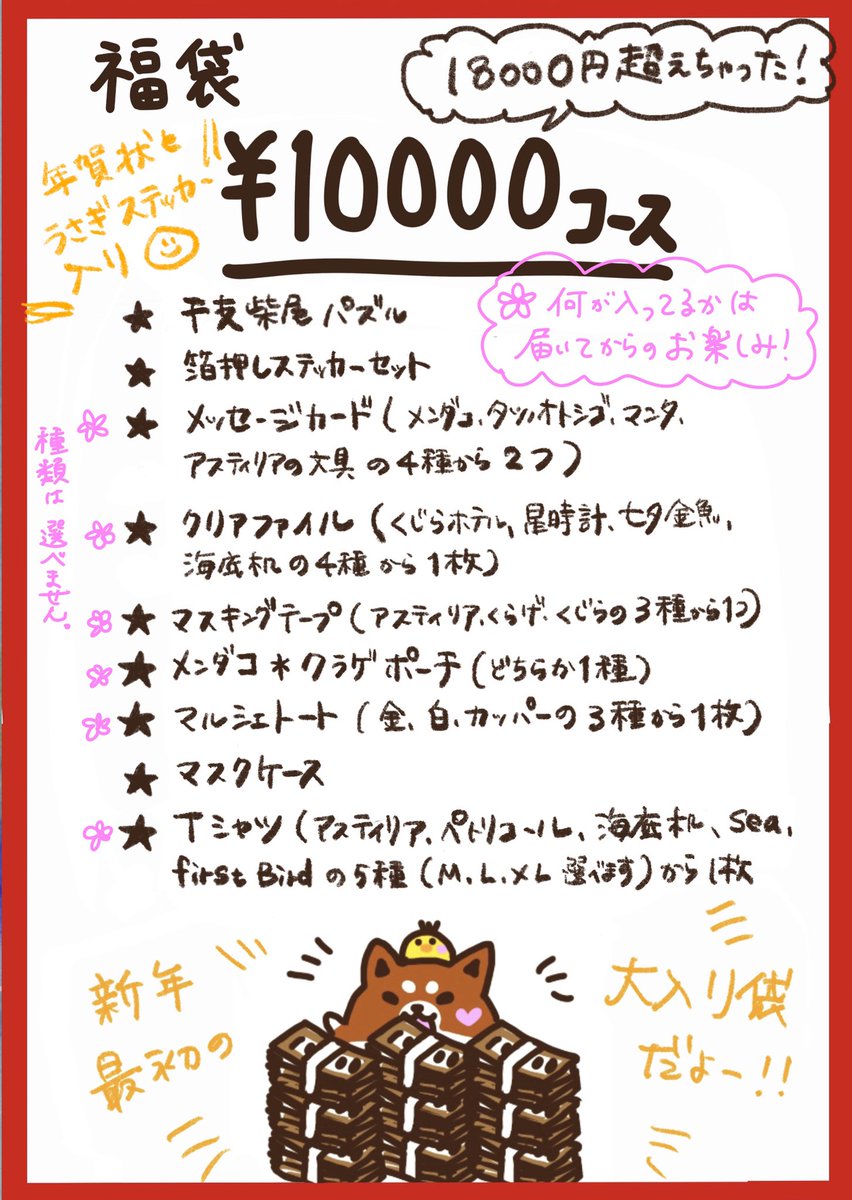 福袋
18000円超えちゃった!
年賀状と
うさぎステッカー
入り
¥10000コース
何が入ってるかは
届いてからのお楽しみ!
★ 干支柴尾パズル
★ 箔押しステッカーセット
★ メッセージカード(メンダコ、タツノオトシゴ、マンタ、
アスティリアの文具の4種から2つ)
種類は選べません。
★ クリアファイル(くじらホテル、星時計、七夕金魚、
海底机の4種から1枚)
★ マスキングテープ(アスティリア、くらげ、くじらの3種から1コ)
★ メンダコ*クラゲポーチ(どちらか1種)
★ マルシェトート(金、白、カッパーの3種から1枚)
★ マスクケース
★ Tシャツ(アスティリア、ペトリコール、海底机、sea,
first Birdの5種(M、L、XL選べます)から1枚
新年
最初の
大入り袋
だよー!!